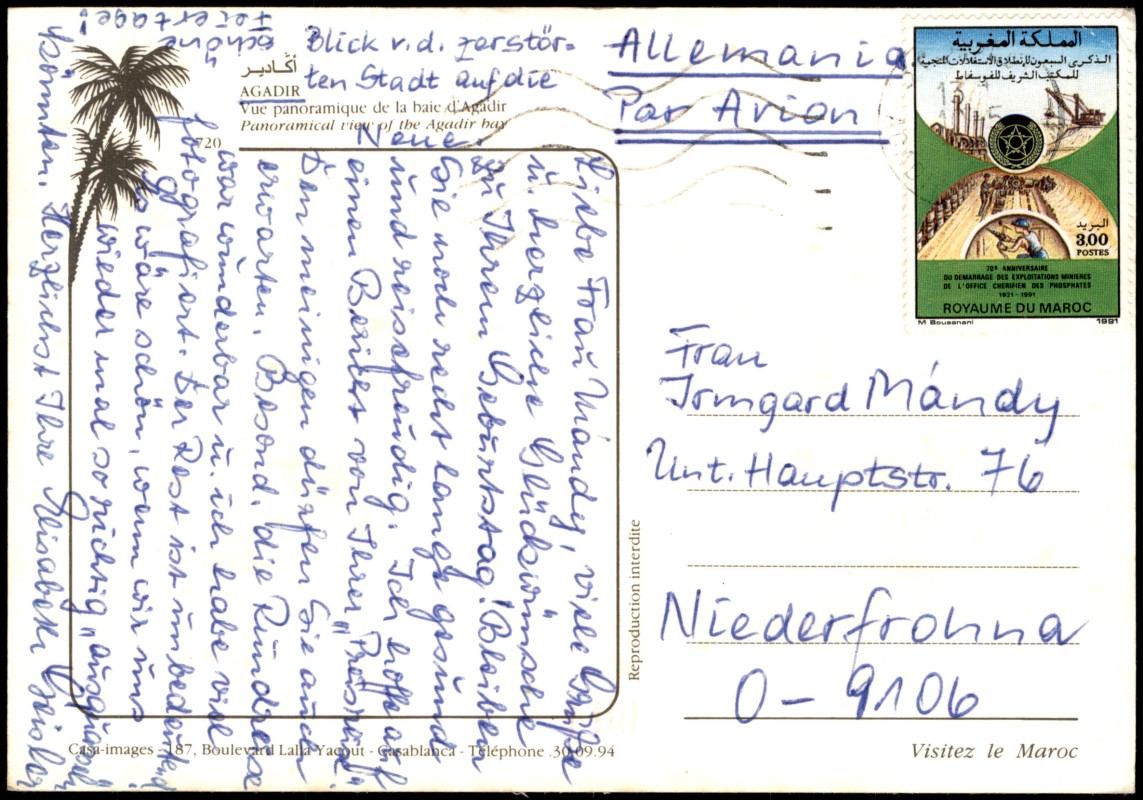 Blick v. d. zerstör-
ten Stadt auf die
Neue.
أكادير
AGADIR
Vue panoramique de la baie d'Agadir
Panoramical view of the Agadir bay
720
Allemania
Par Avion
المملكة المغربية
الذكرى السبعون للانطلاق الاستغلالات المنجمية
للمكتب الشريف للفوسفاط
البريد
3,00
POSTES
70e ANNIVERSAIRE
DU DEMARRAGE DES EXPLOITATIONS MINIERES
DE L'OFFICE CHERIFIEN DES PHOSPHATES
1921-1991
ROYAUME DU MAROC
M Bousnani
1991
Liebe Frau Mándy, viele Grüße
u. herzliche Glückwünsche
zu Ihrem Geburtstag! Bleiben
Sie noch recht lange gesund
und reisefreudig. Ich hoffe auf
einen Bericht von Ihrer „
Den meinigen dürfen Sie auch
erwarten. Besond. die Rundreise
war wunderbar u. ich habe viel
fotografiert. Der Rest ist unbedeutend
Es wäre schön, wenn wir uns
wieder mal so richtig „
könnten. Herzlichst Ihre Elisabeth Geisler
schöne
Feiertage!
Frau
Irmgard Mándy
Unt. Hauptstr. 76
Niederfrohna
O-9106
Reproduction interdite
Casa-images - 187, Boulevard Lalla Yacout - Casablanca - Téléphone .30.09.94
Visitez le Maroc